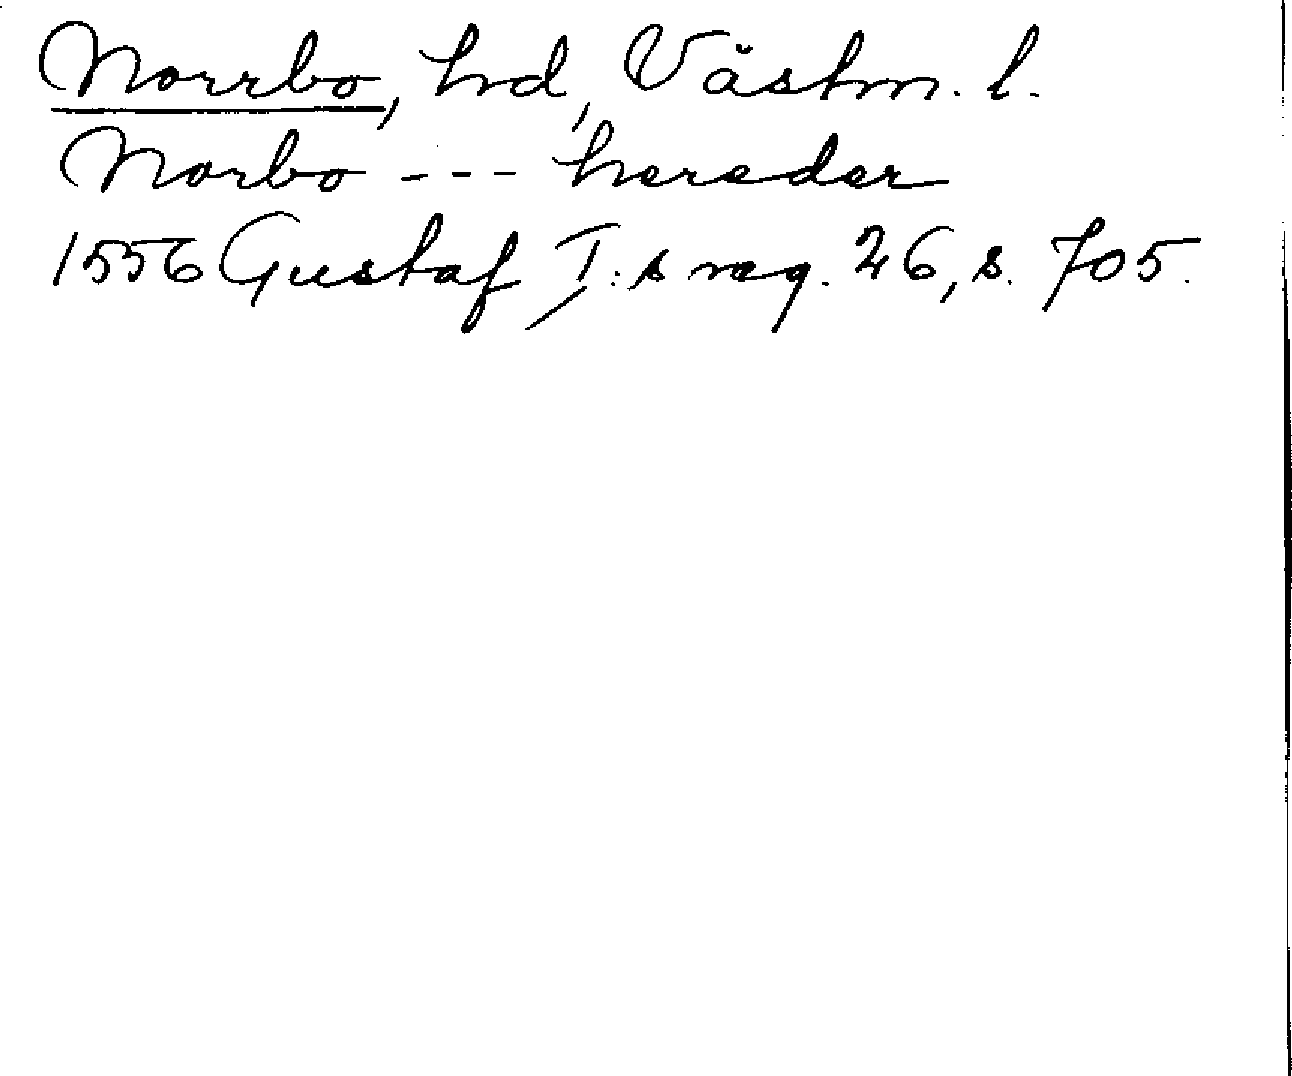 Norrbo, hd, Västm. l.
Norbo --- hereder
1556 Gustaf I:s reg. 26, s. 705.